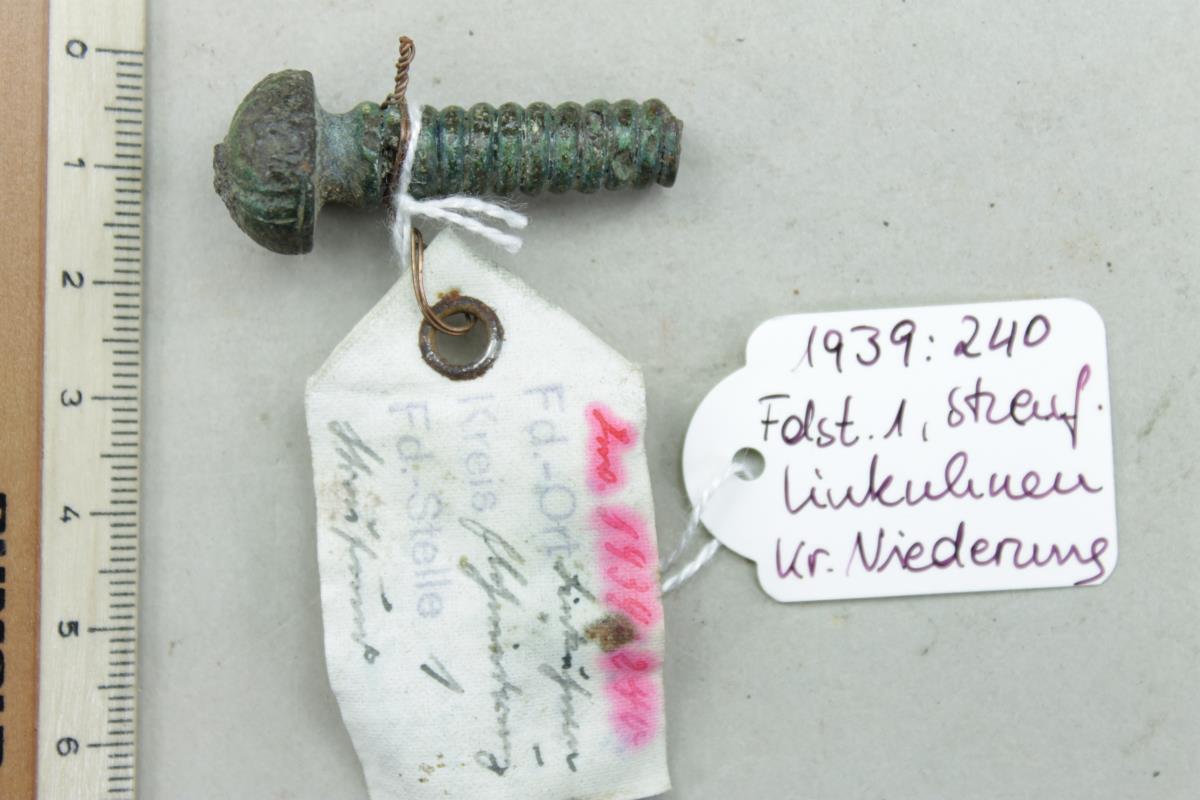 1939:240
Fdst. 1, Streuf.
Linkuhnen
Kr. Niederung
Inv 1939 240
Fd.-Ort Linkuhnen
Kreis Elchniederung
Fd.-Stelle 1
Streufund
0
1
2
3
4
5
6